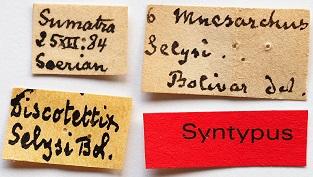 Sumatra
25 XII: 84
Soerian
6 Mnesarchus
Selysi . .
Bolivar det.
Discotettix
Selysi Bol.
Syntypus